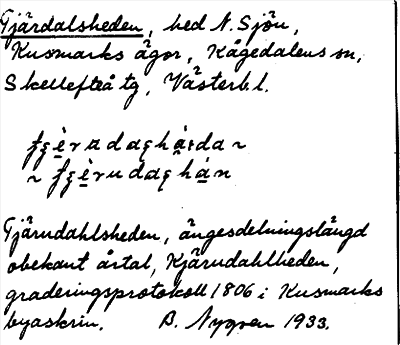 Tjärdalsheden, hed N. Sjön,
Kusmarks ägor, Kågedalens sn,
Skellefteå tg, Västerb. l.
Tjärudahlsheden, ängesdelningslängd
obekant årtal, Kjärudahlheden,
graderingsprotokoll 1806 i Kusmarks
byaskrin. B. Nygren 1933.